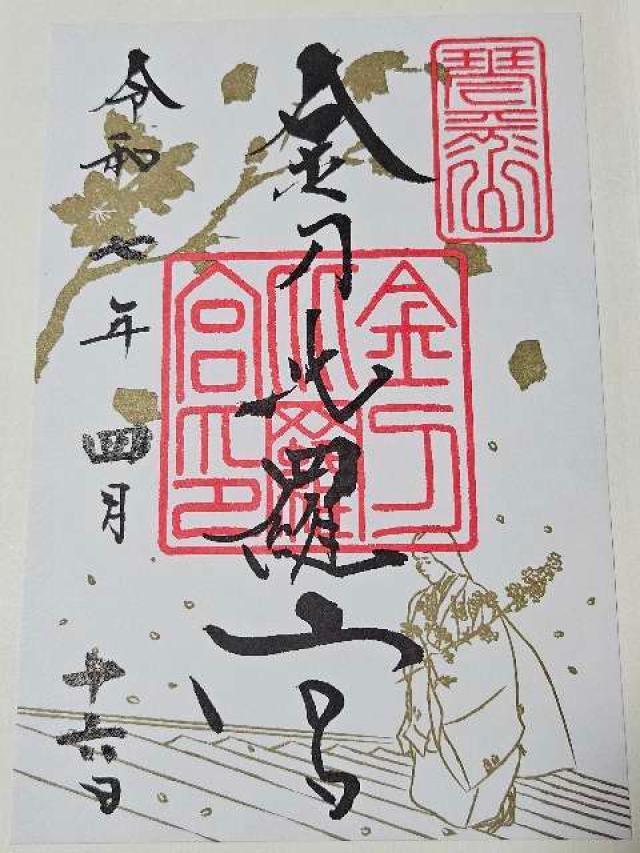 金刀比羅宮
令和七年四月十六日
金刀比羅宮印